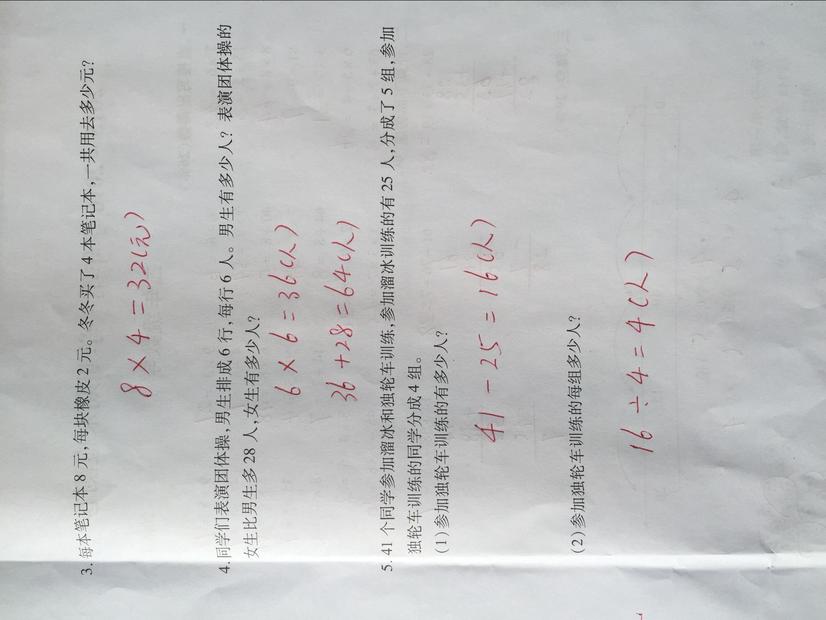 3. 每本笔记本 8 元,每块橡皮 2 元。冬冬买了 4 本笔记本,一共用去多少元?
8×4=32(元)
4. 同学们表演团体操,男生排成 6 行,每行 6 人。男生有多少人? 表演团体操的
女生比男生多 28 人,女生有多少人?
6×6=36(人)
36+28=64(人)
5. 41 个同学参加溜冰和独轮车训练,参加溜冰训练的有 25 人,分成了 5 组,参加
独轮车训练的同学分成 4 组。
(1) 参加独轮车训练的有多少人?
41-25=16(人)
(2) 参加独轮车训练的每组多少人?
16÷4=4(人)